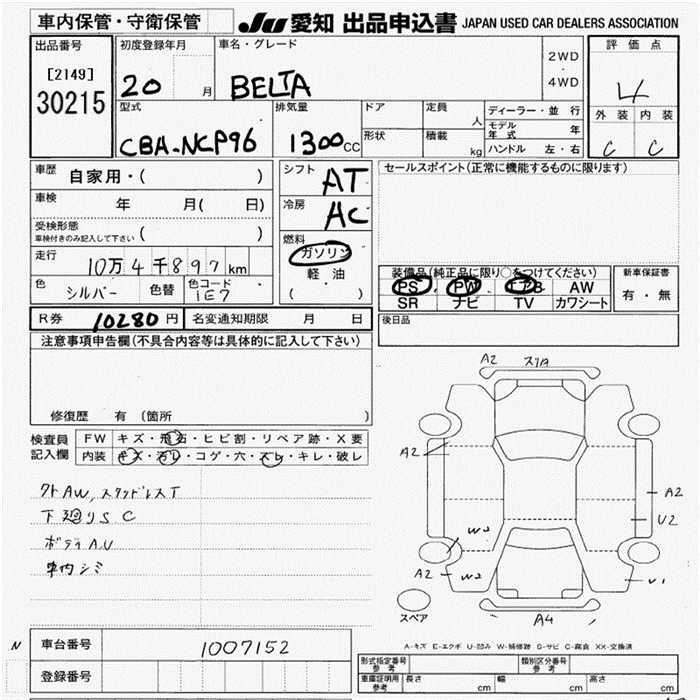 車内保管・守衛保管
JU 愛知 出品申込書 JAPAN USED CAR DEALERS ASSOCIATION
出品番号
[2149]
30215
初度登録年月
20 月
車名・グレード
BELTA
2WD
・
4WD
評価点
4
外装 内装
C C
型式
CBA-NCP96
排気量
1300CC
ドア
定員
人
形状
積載
kg
ディーラー・並行
モデル年式 年
ハンドル 左・右
車歴 自家用・( )
車検 年 月( 日)
受検形態
車検付きのみ記入して下さい ( )
走行 10万4千897km
色 シルバー 色替 色コード 1E7
シフト AT
冷房 AC
燃料
ガソリン
軽・油
( )
セールスポイント(正常に機能するものに限ります)
装備品(純正品に限り○をつけてください)
PS PW エアB AW
SR ナビ TV カワシート
新車保証書
有・無
R券 10280円 名変通知期限 月 日
後日品
注意事項申告欄(不具合内容等は具体的に記入して下さい)
修復歴 有(箇所 )
検査員
記入欄
FW キズ・飛石・ヒビ割・リペア跡・X要
内装 キズ・汚レ・コゲ・穴・スレ・キレ・破レ
外AW,スタッドレスT
下廻りSC
ボディA,U
車内シミ
A2 スリA
A2
A2
U2
W2
A2 W2
U1
スペア
A4
A-キズ E-エクボ U-凹み W-補修跡 S-サビ C-腐食 XX-交換済
N 車台番号 1007152
登録番号
形式指定番号
参考
類別区分番号
参考
車庫証明用
参考
長さ cm 幅 cm 高さ cm